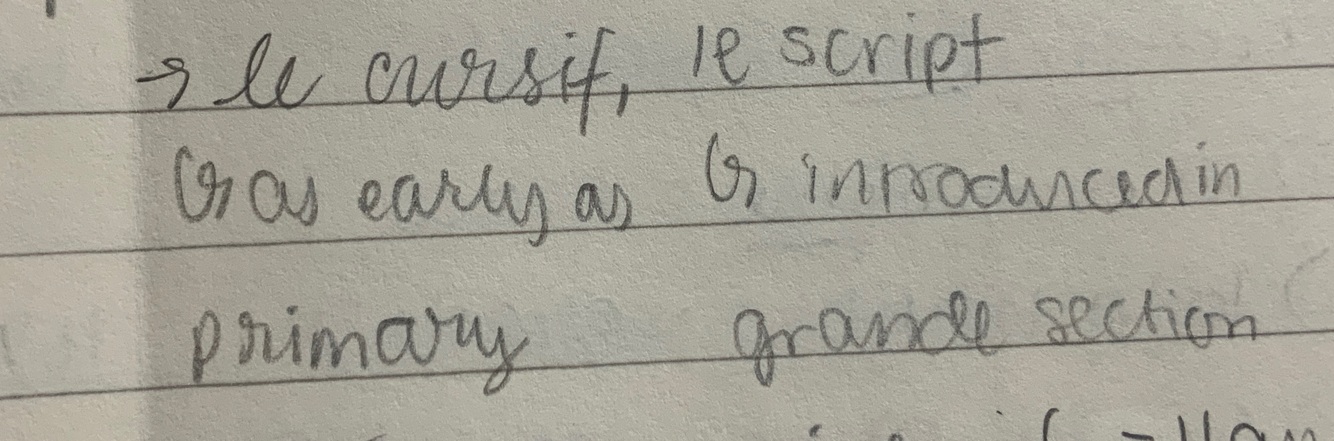 → le cursif, le script
↳ as early as ↳ inroduced in
primary grande section